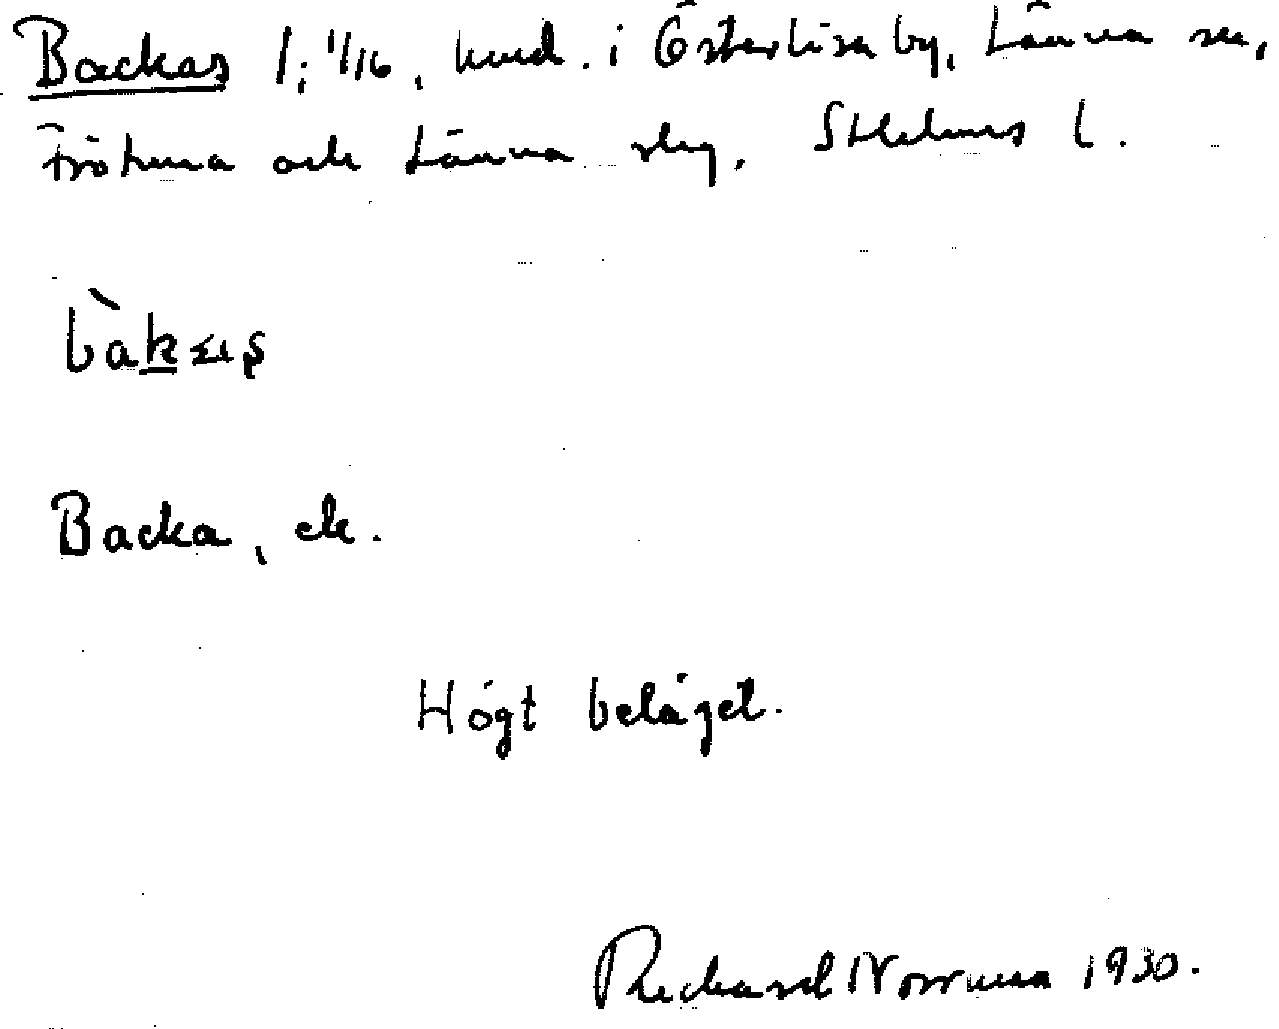 Backas 1; 1/16, hmd. i Österlisa by, Länna sn,
Frötuna och Länna slg, Sthlms l.
Backa, ck.
Högt beläget.
Rickard Norrman 1930.